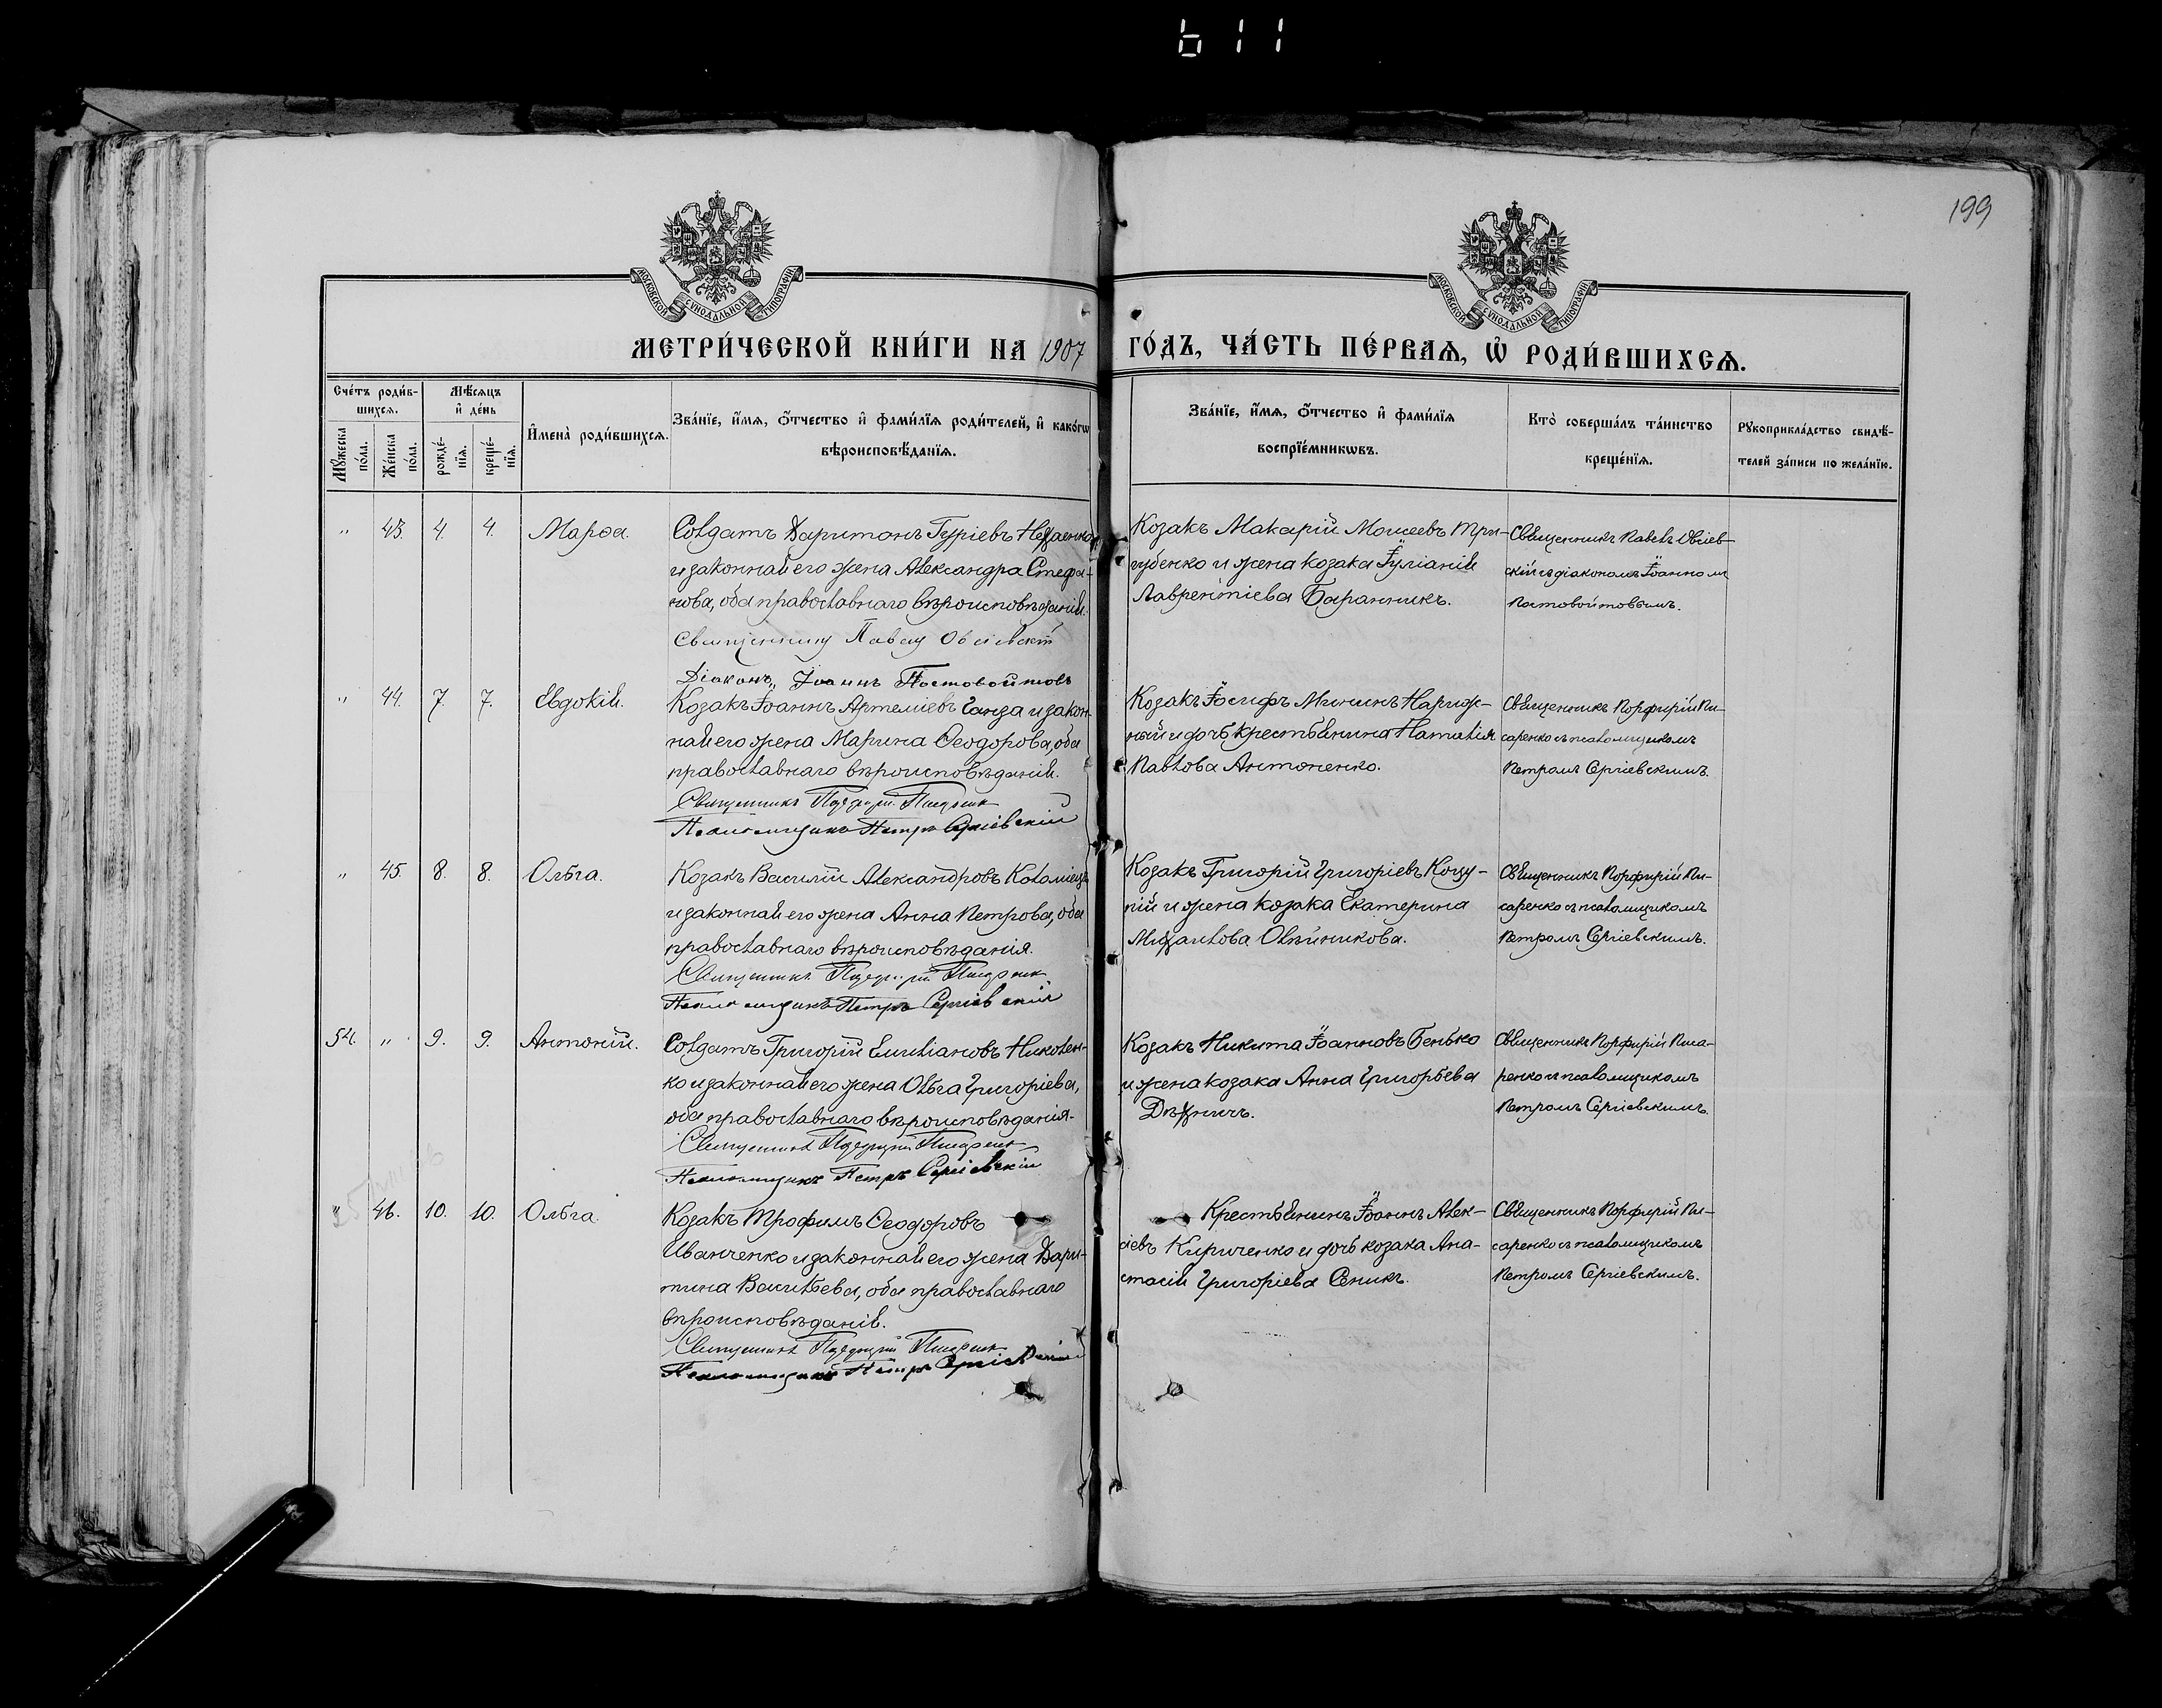 611
199
МОСКОВСКОЙ СУНОДАЛЬНОЙ ТИПОГРАФІИ
МОСКОВСКОЙ СУНОДАЛЬНОЙ ТИПОГРАФІИ
МЕТРИ́ЧЕСКОЙ КНИ́ГИ НА 1907 ГО́ДЪ, ЧА́СТЬ ПЕ́РВАѦ, Ѡ҆ РОДИ́ВШИХСѦ.
Сче́тъ роди́в-
шихсѧ.
Мѣ́сѧцъ
и҆ де́нь
Мꙋ́жеска по́ла.
Же́нска по́ла.
рожде́-
нїѧ.
креще́-
нїѧ.
И҆мена̀ роди́вшихсѧ.
Зва́нїе, и҆́мѧ, ѻ҆́тчество и҆ фами́лїѧ роди́телей, и҆ како́гѡ
вѣроисповѣ́данїѧ.
Зва́нїе, и҆́мѧ, ѻ҆́тчество и҆ фами́лїѧ
воспрїе́мникѡвъ.
Кто̀ соверша́лъ та́инство
креще́нїѧ.
Рꙋкоприкла́дство свидѣ́-
телей за́писи по жела́нїю.
" 43. 4. 4. Марѳа.
Солдатъ Харитонъ Гуріевъ
и законная его жена Александра Стефа-
нова, оба православнаго вѣроисповѣданія.
Священникъ Павелъ
Діаконъ Іоаннъ Постовойтовъ
Козакъ Макарій Моисеевъ Три-
губенко и жена козака Іуліанія
Лаврентіева Баранникъ.
Священникъ Павелъ
скій съ діакономъ Іоанномъ
Постовойтовымъ.
" 44. 7. 7. Евдокія.
Козакъ Іоаннъ Артеміевъ Ганза и закон-
ная его жена Марина Ѳеодорова, оба
православнаго вѣроисповѣданія.
Священникъ Порфирій Писаренко
Псаломщикъ Петръ Сергіевскій
Козакъ Іосифъ Мининъ Нариж-
ный и дочь крестьянина Наталія
Павлова Антоненко.
Священникъ Порфирій Пи-
саренко съ псаломщикомъ
Петромъ Сергіевскимъ.
" 45 8. 8. Ольга.
Козакъ Василій Александровъ Коломіецъ
и законная его жена Анна Петрова, оба
православнаго вѣроисповѣданія.
Священникъ Порфирій Писаренко
Псаломщикъ Петръ Сергіевскій
Козакъ Григорій Григоріевъ Коцу-
пій и жена козака Екатерина
Михаилова Олѣйникова.
Священникъ Порфирій Пи-
саренко съ псаломщикомъ
Петромъ Сергіевскимъ.
54. " 9. 9. Антоній.
Солдатъ Григорій Емиліановъ Николен-
ко и законная его жена Ольга Григоріева,
оба православнаго вѣроисповѣданія.
Священникъ Порфирій Писаренко
Псаломщикъ Петръ Сергіевскій
Козакъ Никита Іоанновъ Бенько
и жена козака Анна Григорьева
Дѣхничъ.
Священникъ Порфирій Писа-
ренко съ псаломщикомъ
Петромъ Сергіевскимъ.
" 46. 10. 10. Ольга.
Козакъ Трофимъ Ѳеодоровъ
Иванченко и законная его жена Хари-
тина Васильева, оба православнаго
вѣроисповѣданія.
Священникъ Порфирій Писаренко
Псаломщикъ Петръ Сергіевскій
Крестьянинъ Іоаннъ Алек-
сіевъ Кириченко и дочь козака Ана-
стасія Григоріева Сеникъ.
Священникъ Порфирій Пи-
саренко съ псаломщикомъ
Петромъ Сергіевскимъ.